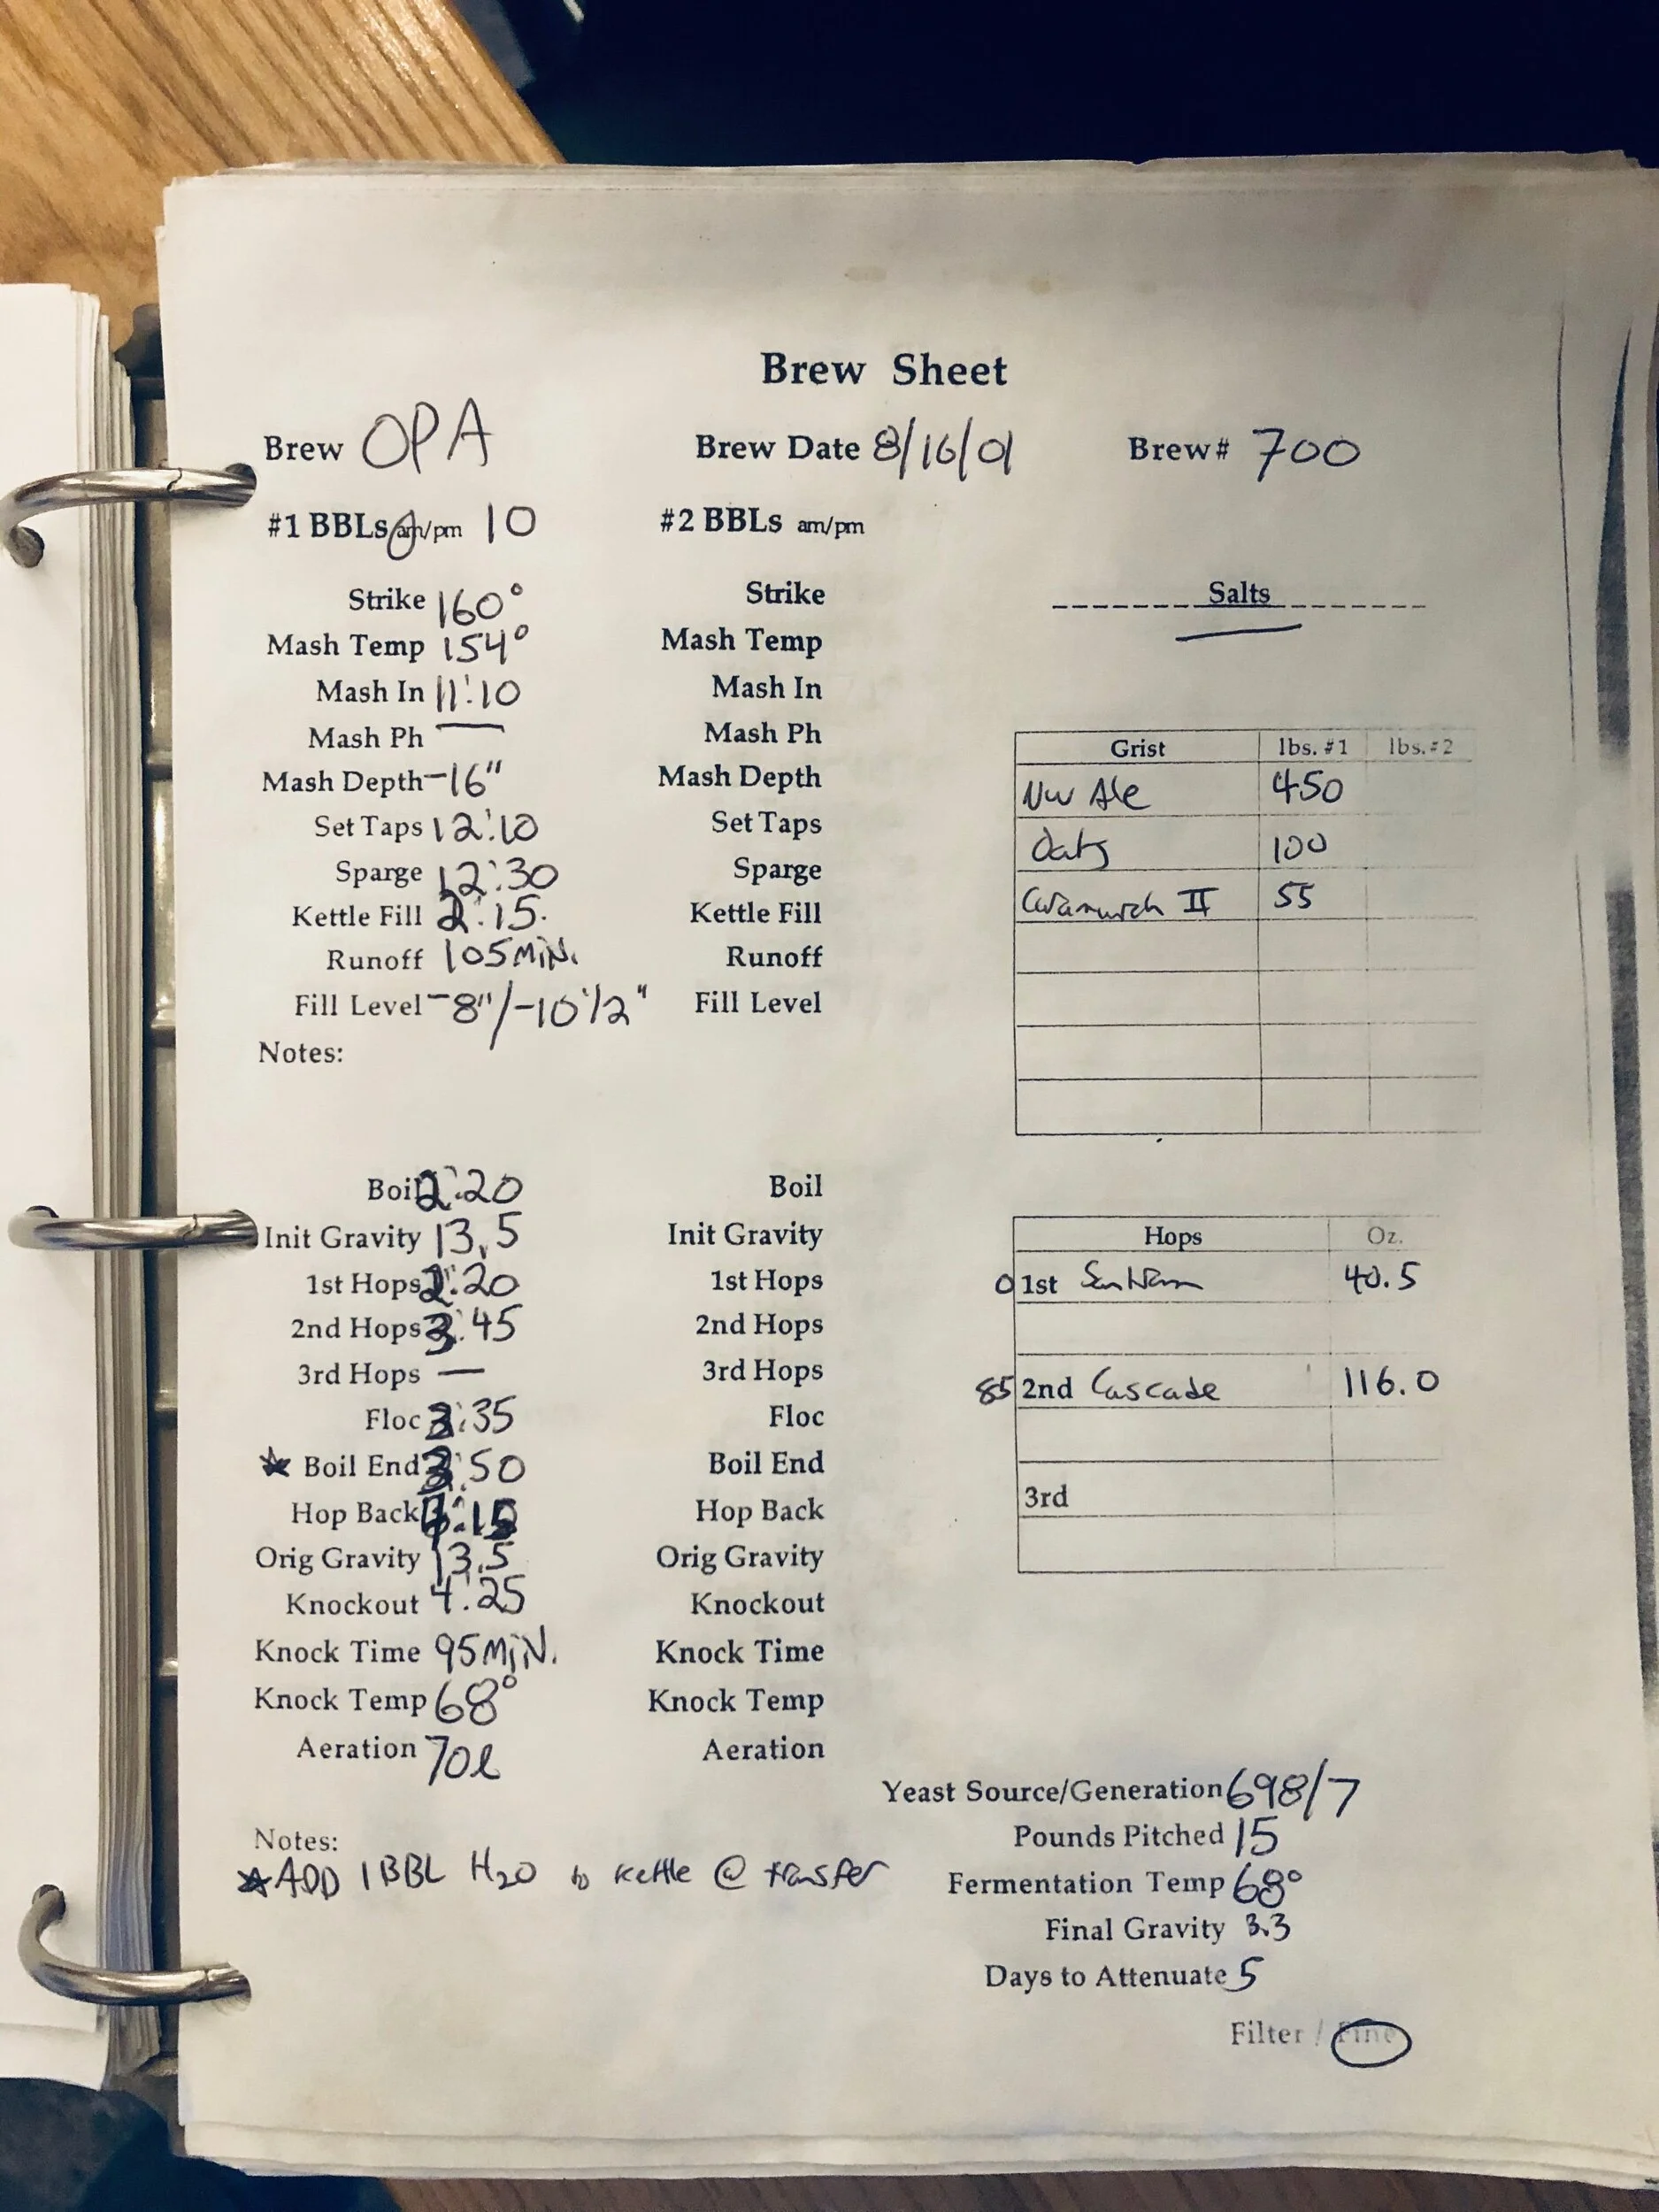 Brew Sheet
Brew OPA Brew Date 8/16/01 Brew# 700
#1 BBLs am/pm 10 #2 BBLs am/pm
Strike 160° Strike
Salts
Mash Temp 154° Mash Temp
Mash In 11:10 Mash In
Mash Ph — Mash Ph
Mash Depth -16" Mash Depth
Set Taps 12:10 Set Taps
Sparge 12:30 Sparge
Kettle Fill 2:15 Kettle Fill
Runoff 105 MIN. Runoff
Fill Level -8"/-10 1/2" Fill Level
Notes:
Grist lbs. #1 lbs. #2
NW Ale 450
Oats 100
II 55
Boil 2:20 Boil
Init Gravity 13.5 Init Gravity
1st Hops 2:20 1st Hops
2nd Hops 3:45 2nd Hops
3rd Hops — 3rd Hops
Floc 3:35 Floc
★ Boil End 3:50 Boil End
Hop Back 4:15 Hop Back
Orig Gravity 13.5 Orig Gravity
Knockout 4:25 Knockout
Knock Time 95 MIN. Knock Time
Knock Temp 68° Knock Temp
Aeration 70l Aeration
Hops Oz.
0 1st 40.5
85 2nd Cascade 116.0
3rd
Notes:
★ ADD 1 BBL H2O to kettle @ transfer
Yeast Source/Generation 698/7
Pounds Pitched 15
Fermentation Temp 68°
Final Gravity 3.3
Days to Attenuate 5
Filter / Fine